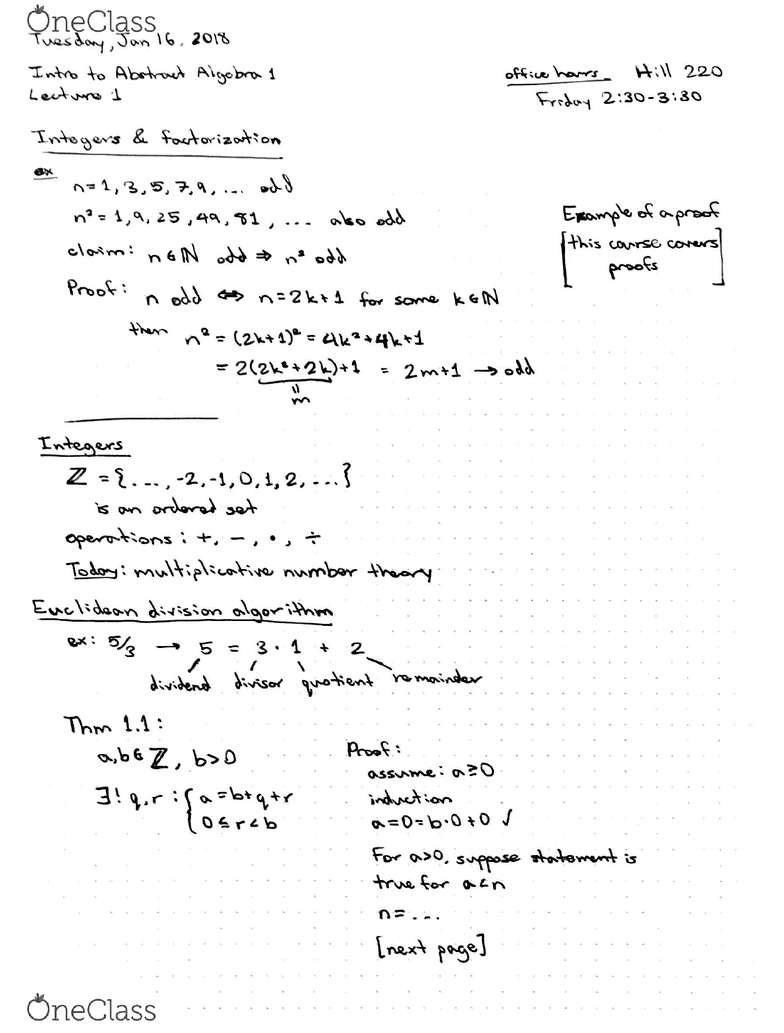 OneClass
Tuesday, Jan 16, 2018
Intro to Abstract Algebra 1
Lecture 1
office hours Hill 220
Friday 2:30-3:30
Integers & factorization
ex
n=1, 3, 5, 7, 9, ... odd
n² = 1, 9, 25, 49, 81, ... also odd
claim: n∈ℕ odd ⇒ n² odd
Example of a proof
[this course covers
proofs]
Proof: n odd ⇔ n=2k+1 for some k∈ℕ
then n² = (2k+1)² = 4k²+4k+1
= 2(2k²+2k)+1 = 2m+1 → odd
=
m
Integers
ℤ = {..., -2, -1, 0, 1, 2, ...}
is an ordered set
operations: +, -, •, ÷
Today: multiplicative number theory
Euclidean division algorithm
ex: 5/3 → 5 = 3 · 1 + 2
dividend divisor quotient remainder
Thm 1.1:
a,b∈ℤ, b>0
∃! q,r : { a=b+q+r
0≤r<b
Proof:
assume: a≥0
induction
a=0=b·0+0 ✓
For a>0, suppose statement is
true for a<n
n=...
[next page]
OneClass